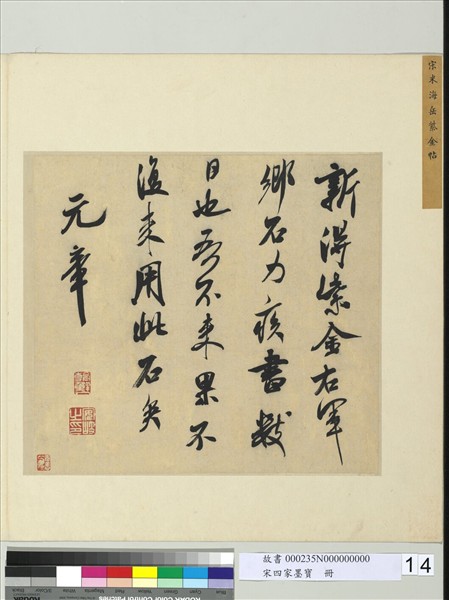 宋米海岳紫金帖
新得紫金右軍
鄉石力疾書數
日也吾不來果不
復來用此石矣
元章
故書 000235N000000000
宋四家墨寶 冊
14
KODAK Color Control Patches